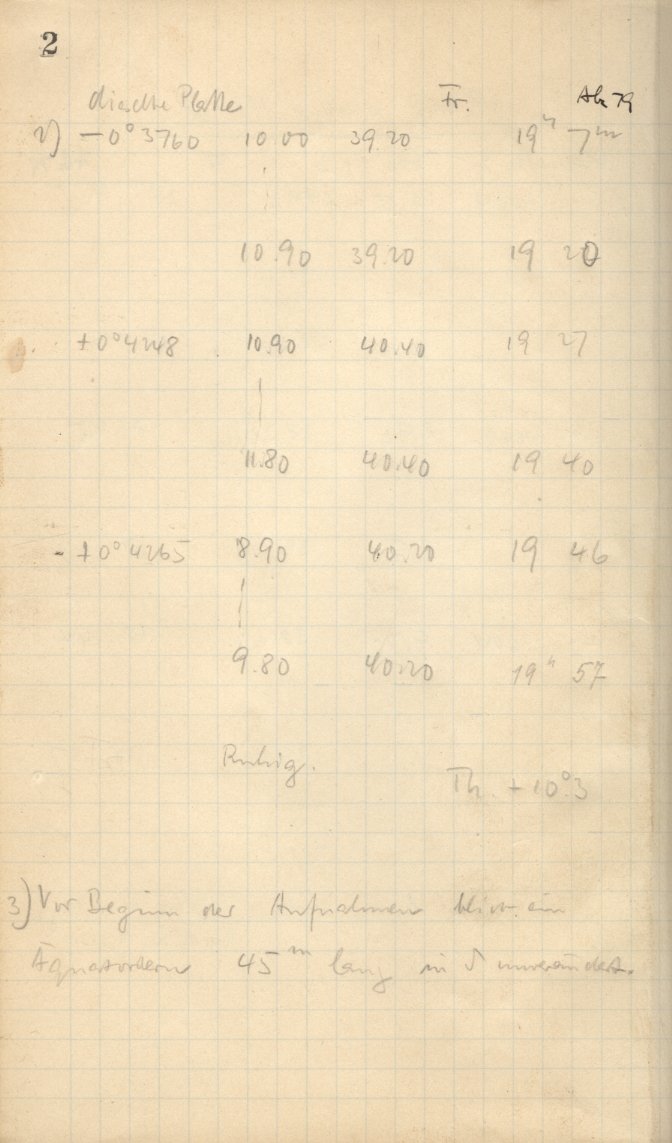 2
dieselbe Platte Fr.
2) -0° 3760 10.00 39.20 19h 7m
10.90 39.20 19 20
+0° 4248 10.90 40.40 19 27
11.80 40.40 19 40
- +0° 4265 8.90 40.20 19 46
9.80 40.20 19h 57
Ruhig. Th. + 10°.3
3) Vor Beginn der Aufnahmen blieb ein
Äquatorstern 45m lang in δ unverändert.